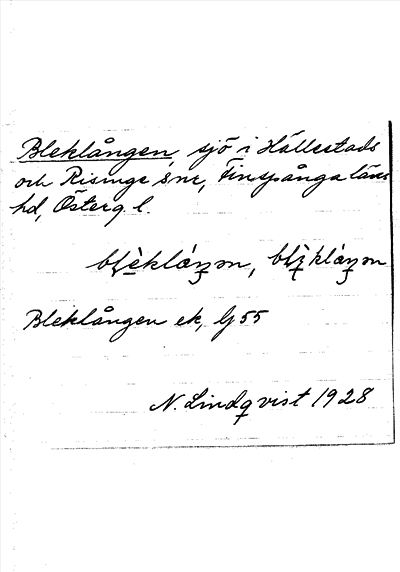 Bleklången, sjö i Hällestads
och Risinge snr, Finspånga läns
hd, Österg. l.
Bleklången ek, Gj 55
N. Lindqvist 1928